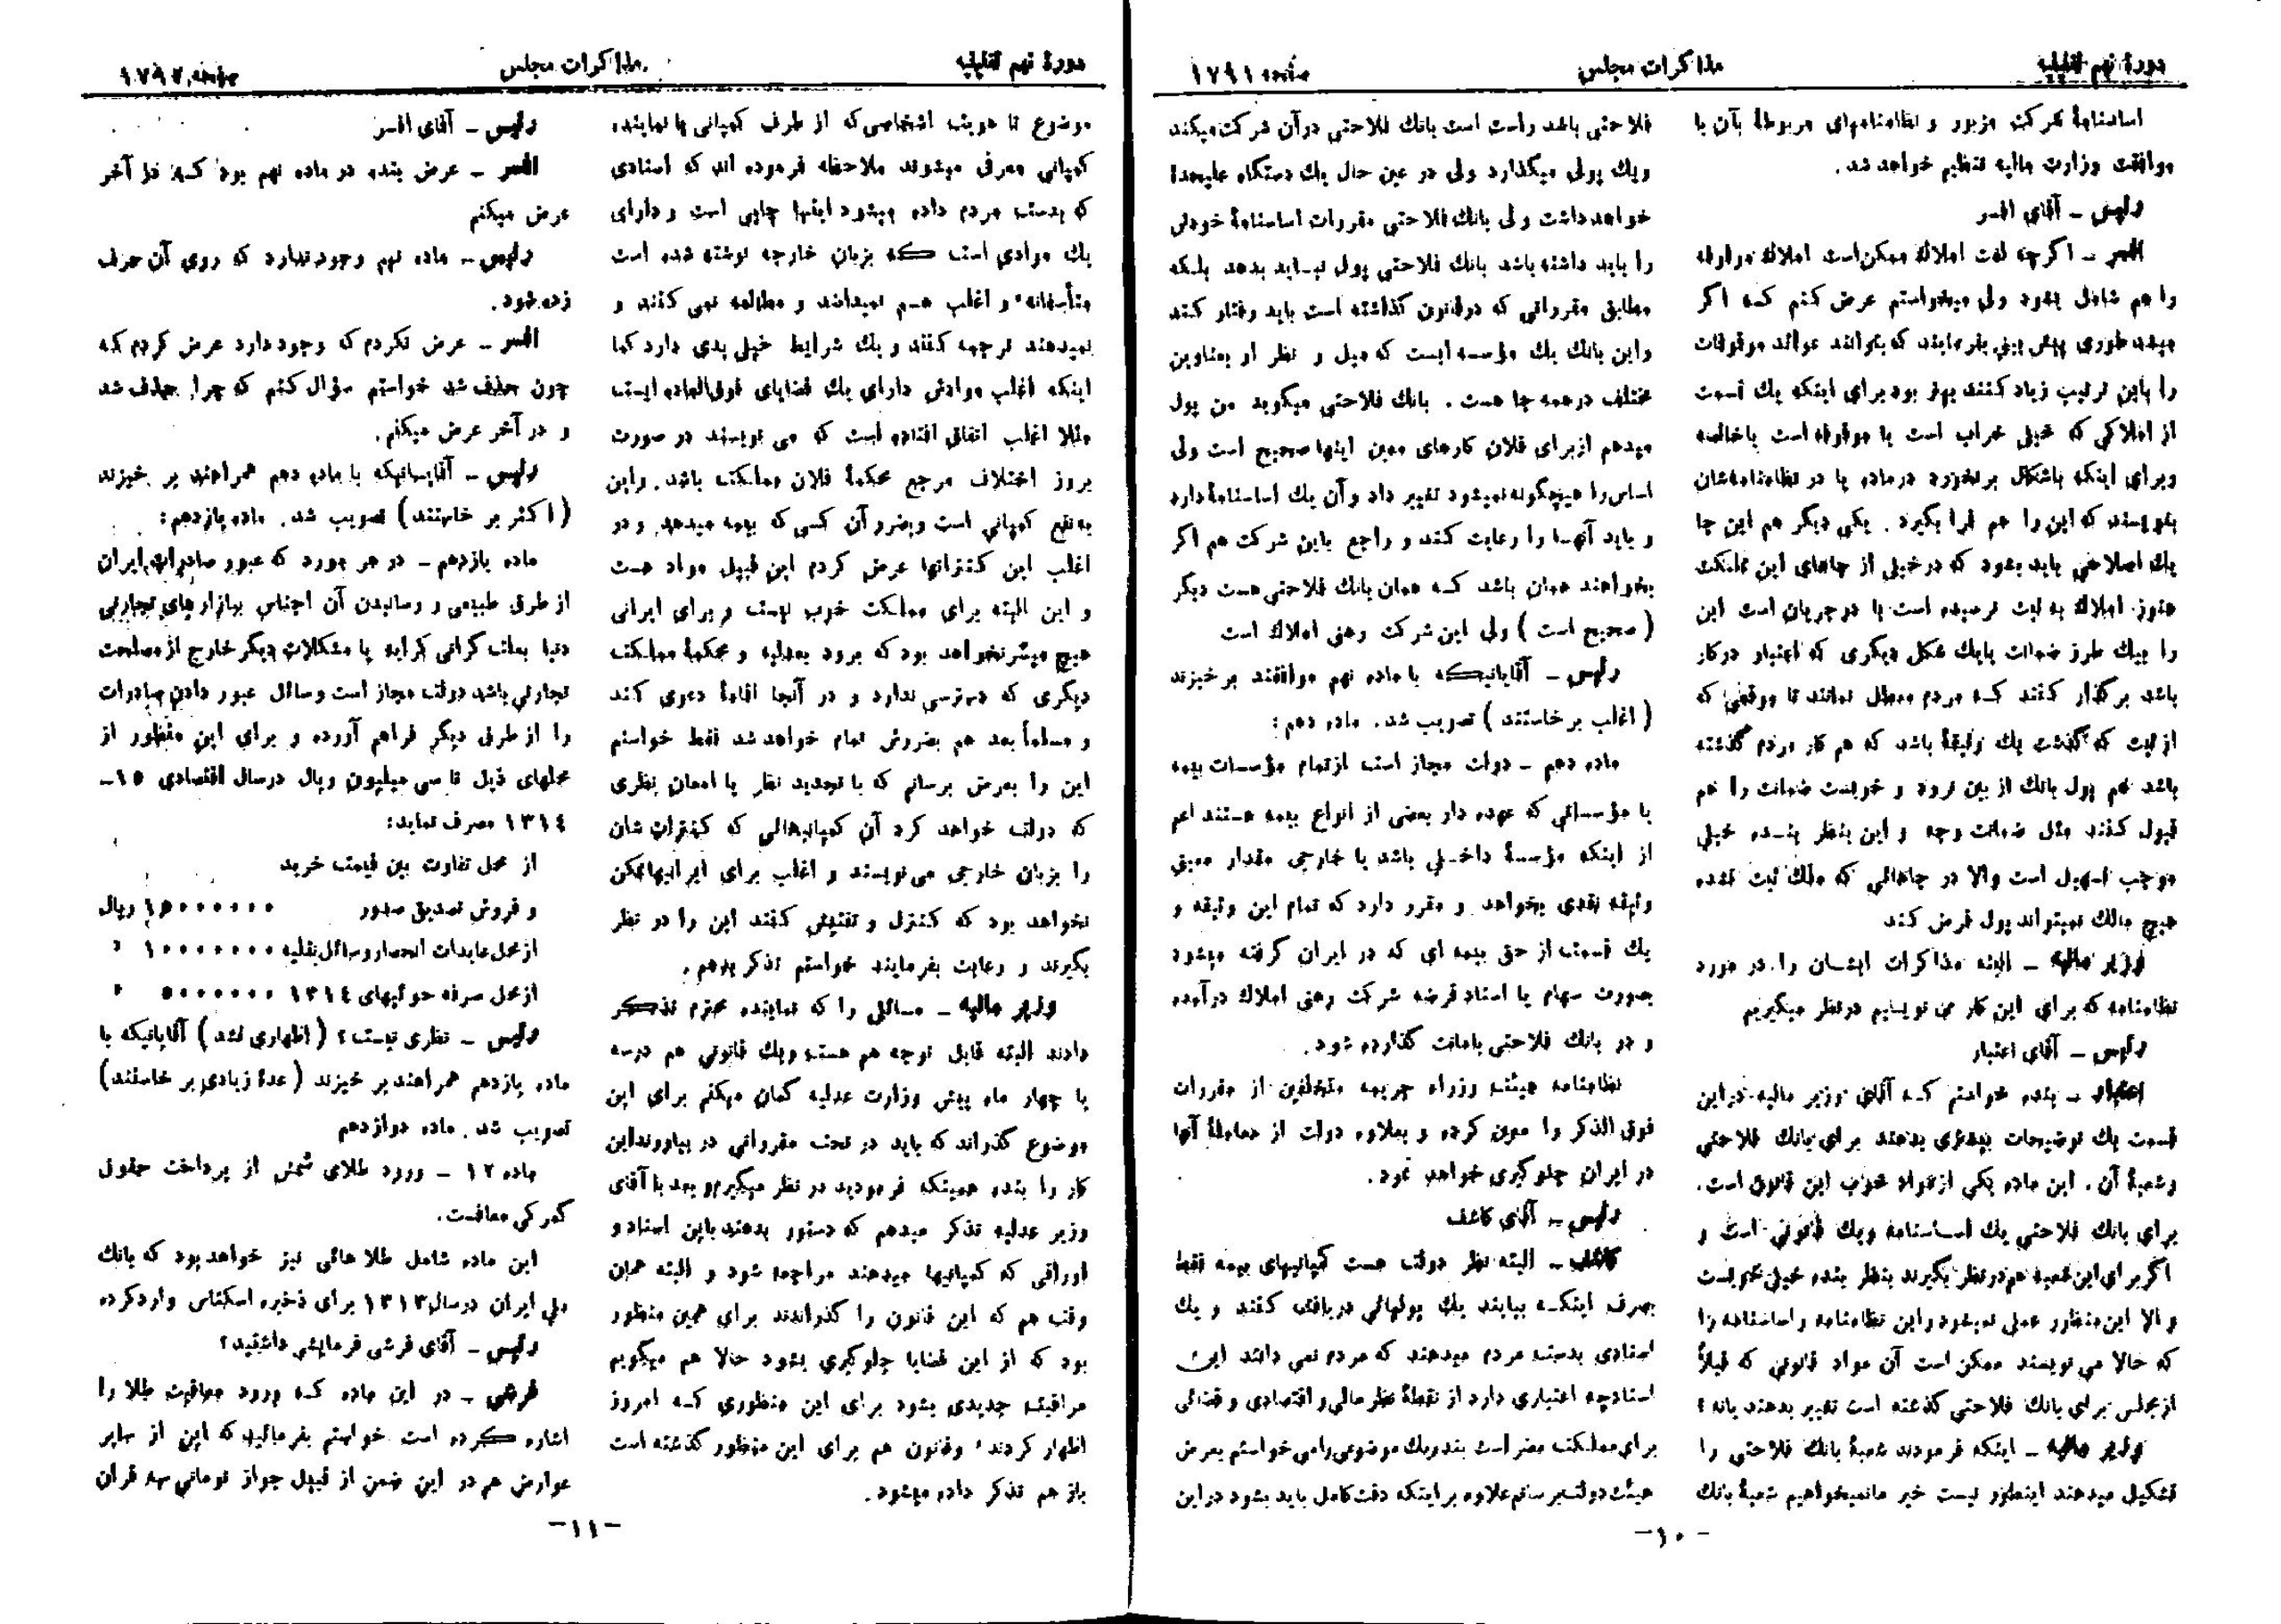 دورهٔ نهم تقنینیه
مذاکرات مجلس
صفحه ۱۷۹۱
اساسنامهٔ شرکت مزبور و نظامنامهای مربوطهٔ بآن با
موافقت وزارت مالیه تنظیم خواهد شد.
رئیس ـ آقای افسر
افسر ـ اگرچه لغت املاك ممکن است املاك موقوفه
را هم شامل بشود ولی میخواستم عرض کنم که اگر
میشد طوری پیش بینی بفرمایند که بتوانند عوائد موقوفات
را باین ترتیب زیاد کنند بهتر بود برای اینکه یك قسمت
از املاکی که خیلی خراب است یا موقوفه است یا خالصه
وبرای اینکه باشکال برنخورد درماده یا در نظامنامه‌شان
بنویسند که این را هم فرا بگیرد . یکی دیگر هم این جا
یك اصلاحی باید بشود که درخیلی از جاهای این مملکت
هنوز املاك به ثبت نرسیده است یا درجریان است این
را بیك طرز ضمانت یا یك شکل دیگری که اعتبار درکار
باشد برگذار کنند که مردم معطل نمانند تا موقعی که
از ثبت که گذشت یك وثیقهٔ باشد که هم کار مردم گذشته
باشد هم پول بانك از بین نرود و خوبست ضمانت را هم
قبول کنند مثل ضمانت وجه و این بنظر بنده خیلی
موجب تسهیل است والا در جاهائی که ملك ثبت نشده
هیچ مالك نمیتواند پول قرض کند
وزیر مالیه ـ البته مذاکرات ایشان را در مورد
نظامنامه که برای این کار می نویسیم درنظر میگیریم
رئیس ـ آقای اعتبار
اعتبار ـ بنده خواستم که آقای وزیر مالیه دراین
قسمت یك توضیحات بیشتری بدهند برای بانك فلاحتی
وشعبهٔ آن . این ماده یکی ازمواد خوب این قانون است.
برای بانك فلاحتی یك اساسنامه ویك قانونی است و
اگربرای این شعبه هم درنظر بگیرند بنظر بنده خیلی خوبست
و الا این منظور عملی نمیشود و این نظامنامه و اساسنامه را
که حالا می نویسند ممکن است آن مواد قانونی که قبلاً
ازمجلس برای بانك فلاحتی گذشته است تغییر بدهند یانه؟
وزیر مالیه ـ اینکه فرمودند شعبهٔ بانك فلاحتی را
تشکیل میدهند اینطور نیست خیر مانمیخواهیم شعبهٔ بانك
فلاحتی باشد راست است بانك فلاحتی درآن شرکت میکند
ویك پولی میگذارد ولی در عین حال یك دستگاه علیحدهٔ
خواهد داشت ولی بانك فلاحتی مقررات اساسنامهٔ خودش
را باید داشته باشد بانك فلاحتی پول نباید بدهد بلکه
مطابق مقرراتی که درقانون گذاشته است باید رفتار کند
واین بانك یك مؤسسه ایست که میل و نظر او بعناوین
مختلف درهمه جا هست . بانك فلاحتی میگوید من پول
میدهم ازبرای فلان کارهای معین اینها صحیح است ولی
اساس را هیچگونه نمیشود تغییر داد و آن یك اساسنامهٔ دارد
و باید آنها را رعایت کند و راجع باین شرکت هم اگر
بخواهند همان باشد که همان بانك فلاحتی هست دیگر
( صحیح است ) ولی این شرکت رهنی املاك است
رئیس ـ آقایانیکه با ماده نهم موافقند برخیزند
( اغلب برخاستند ) تصویب شد. ماده دهم :
ماده دهم ـ دولت مجاز است ازتمام مؤسسات بیمه
یا مؤسساتی که عهده دار بعضی از انواع بیمه هستند اعم
از اینکه مؤسسهٔ داخلی باشد یا خارجی مقدار معین
وثیقه نقدی بخواهد و مقرر دارد که تمام این وثیقه و
یك قسمت از حق بیمه ای که در ایران گرفته میشود
بصورت سهام یا اسناد قرضه شرکت رهنی املاك درآمده
و در بانك فلاحتی بامانت گذارده شود.
نظامنامه هیئت وزراء جریمه متخلفین از مقررات
فوق الذکر را معین کرده و بعلاوه دولت از معاملهٔ آنها
در ایران جلوگیری خواهد نمود.
رئیس ـ آقای کاشف
کاشف ـ البته نظر دولت هست کمپانیهای بیمه فقط
بصرف اینکه بیایند یك پولهائی دریافت کنند و یك
اسنادی بدست مردم میدهند که مردم نمی دانند این
اسنادچه اعتباری دارد از نقطهٔ نظر مالی و اقتصادی و قضائی
برای مملکت مضر است بنده یك موضوعی را می خواستم بعرض
هیئت دولت برسانم علاوه براینکه دقت کامل باید بشود دراین
−۱۰−
دورهٔ نهم تقنینیه
مذاکرات مجلس
صفحه ۱۷۹۲
موضوع تا هویت اشخاصی که از طرف کمپانی یا نماینده
کمپانی معرفی میشوند ملاحظه فرموده اند که اسنادی
که بدست مردم داده میشود اینها چاپی است و دارای
یك موادی است که بزبان خارجه نوشته شده است
متأسفانه و اغلب هم نمیدانند و مطالعه نمی کنند و
نمیدهند ترجمه کنند و یك شرایط خیلی بدی دارد کما
اینکه اغلب موادش دارای یك قضایای فوق العاده ایست
مثلا اغلب اتفاق افتاده است که می نویسند در صورت
بروز اختلاف مرجع محکمهٔ فلان مملکت باشد. واین
به نفع کمپانی است وبضرر آن کسی که بیمه میدهد. و در
اغلب این کنتراتها عرض کردم این قبیل مواد هست
و این البته برای مملکت خوب نیست و برای ایرانی
هیچ میسر نخواهد بود که برود بعدلیه و محکمهٔ مملکت
دیگری که دسترسی ندارد و در آنجا اقامهٔ دعوی کند
و مسلماً بعد هم بضررش تمام خواهد شد فقط خواستم
این را بعرض برسانم که با تجدید نظر یا امعان نظری
که دولت خواهد کرد آن کمپانیهائی که کنترات شان
را بزبان خارجی می نویسند و اغلب برای ایرانیها ممکن
نخواهد بود که کنترل و تفتیش کنند این را در نظر
بگیرند و رعایت بفرمایند خواستم تذکر بدهم.
وزیر مالیه ـ مسائلی را که نماینده محترم تذکر
دادند البته قابل توجه هم هست ویك قانونی هم درسه
یا چهار ماه پیش وزارت عدلیه گمان میکنم برای این
موضوع گذراند که باید در تحت مقرراتی در بیاورند این
کار را بنده همینکه فرمودید در نظر میگیرم و بعد با آقای
وزیر عدلیه تذکر میدهم که دستور بدهند باین اسناد و
اوراقی که کمپانیها میدهند مراجعه شود و البته همان
وقت هم که این قانون را گذراندند برای همین منظور
بود که از این قضایا جلوگیری بشود حالا هم میگویم
مراقبت جدیدی بشود برای این منظوری که امروز
اظهار کردند؛ وقانون هم برای این منظور گذشته است
باز هم تذکر داده میشود.
رئیس ـ آقای افسر
افسر ـ عرض بنده در ماده نهم بود که در آخر
عرض میکنم
رئیس ـ ماده نهم وجود ندارد که روی آن حرف
زده شود.
افسر ـ عرض نکردم که وجود دارد عرض کردم که
چون حذف شد خواستم سؤال کنم که چرا حذف شد
و در آخر عرض میکنم.
رئیس ـ آقایانیکه با ماده دهم همراهند بر خیزند
( اکثر بر خاستند ) تصویب شد. ماده یازدهم:
ماده یازدهم ـ در هر مورد که عبور صادرات ایران
از طرق طبیعی و رسانیدن آن اجناس ببازارهای تجارتی
دنیا بعلت گرانی کرایه یا مشکلات دیگر خارج از مصلحت
تجارتی باشد دولت مجاز است وسائل عبور دادن صادرات
را از طرق دیگر فراهم آورده و برای این منظور از
محلهای ذیل تا سی میلیون ریال درسال اقتصادی ۱۵ـ
۱۳۱٤ مصرف نماید:
از محل تفاوت بین قیمت خرید
و فروش تصدیق صدور ۱۵۰۰۰۰۰۰ ریال
ازمحل عایدات انحصار وسائل نقلیه ۱۰۰۰۰۰۰۰ «
ازمحل صرفه جوئیهای ۱۳۱٤ ۵۰۰۰۰۰۰ «
رئیس ـ نظری نیست؟ ( اظهاری نشد ) آقایانیکه با
ماده یازدهم همراهند بر خیزند (عدهٔ زیادی بر خاستند)
تصویب شد. ماده دوازدهم
ماده ۱۲ ـ ورود طلای شمش از پرداخت حقوق
گمرکی معافست.
این ماده شامل طلا هائی نیز خواهد بود که بانك
ملی ایران درسال ۱۳۱۳ برای ذخیره اسکناس وارد کرده
رئیس ـ آقای فرشی فرمایشی داشتید؟
فرشی ـ در این ماده که ورود معافیت طلا را
اشاره کرده است خواستم بفرمائید که این از سایر
عوارض هم در این ضمن از قبیل جواز تومانی سه قران
−۱۱−